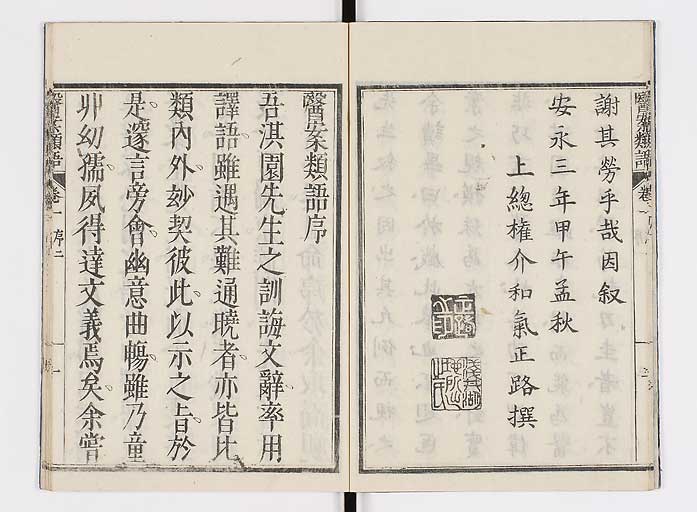 謝其勞乎哉因叙
安永三年甲午孟秋
上總權介和氣正路撰
醫案類語序
吾淇園先生之訓誨文辭率用
譯語雖遇其難通曉者亦皆比
類內外妙契彼此以示之旨於
是邃言旁會幽意曲暢雖乃童
丱幼孺夙得達文義焉矣余嘗
醫案類語 卷一 序二